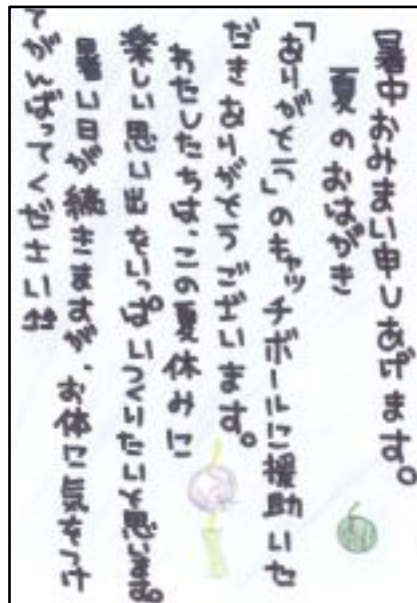 暑中おみまい申しあげます。
夏のおはがき
「ありがとう」のキャッチボールに援助いた
だきありがとうございます。
わたしたちは、この夏休みに
楽しい思い出をいっぱいつくりたいと思います。
暑い日が続きますが、お体に気をつけ
てがんばってください